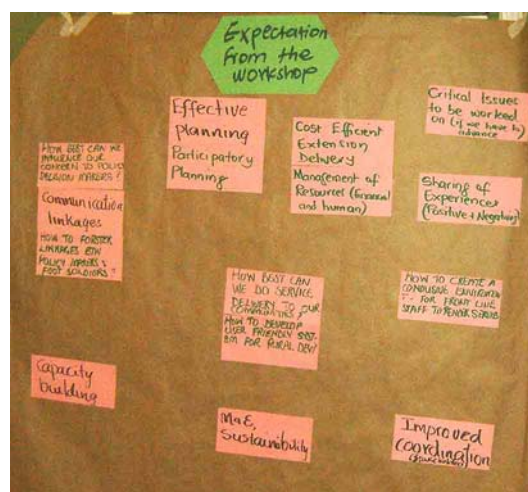 Expectation
from the
workshop
Effective
planning
Participatory
Planning
Cost Efficient
Extension
Delivery
Management of
Resources (financial
and human)
Critical Issues
to be worked
on (if we have to)
advance
Sharing of
Experiences
(Positive + Negative)
HOW BEST CAN WE
INFLUENCE OUR
CONCERN TO POLICY
DECISION MAKERS?
Communication
linkages
HOW TO FORSTER
LINKAGES BTW
POLICY MAKERS &
FOOT SOLDIORS?
HOW BEST CAN
WE DO SERVICE
DELIVERY TO OUR
COMMUNITIES?
HOW TO DEVELOP
USER FRIENDLY SYST-
EM FOR RURAL DEV?
HOW TO CREATE A
CONDUSIVE ENVIRONMENT
- FOR FRONT LINE
STAFF TO RENDER SERVICE
Capacity
building
M&E,
Sustainability
Improved
Coordination